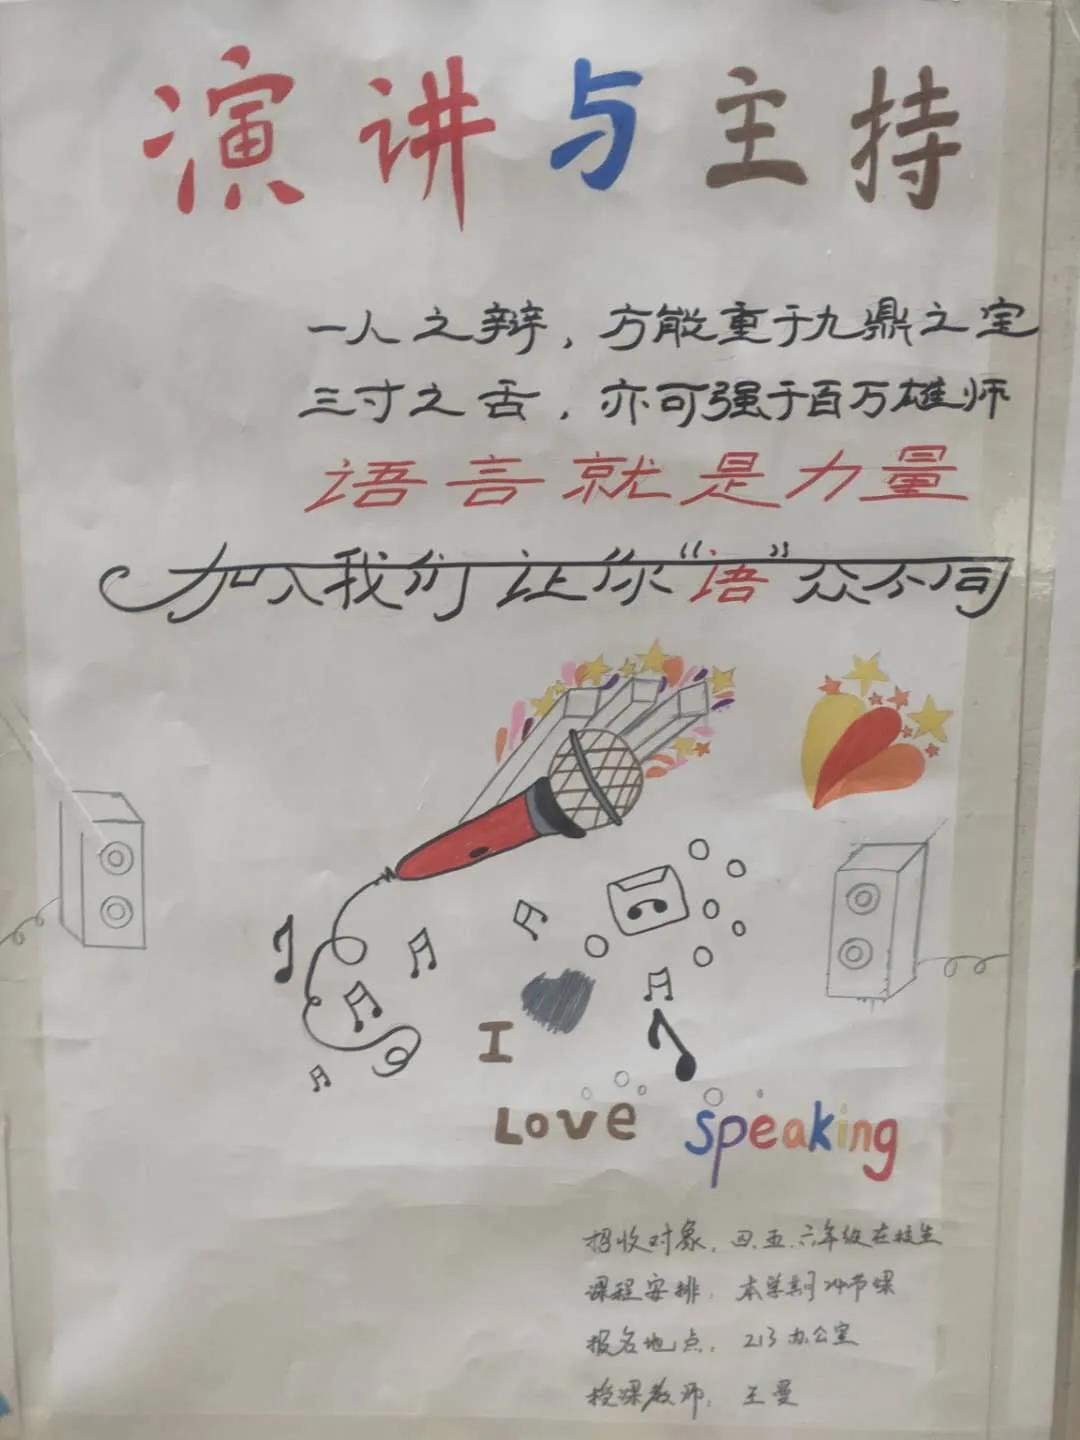 演讲与主持
一人之辩，方能重于九鼎之宝
三寸之舌，亦可强于百万雄师
语言就是力量
加入我们 让你“语”众不同
I
Love speaking
招收对象：四、五、六年级在校生
课程安排：本学期24节课
报名地点：213办公室
授课教师：王曼